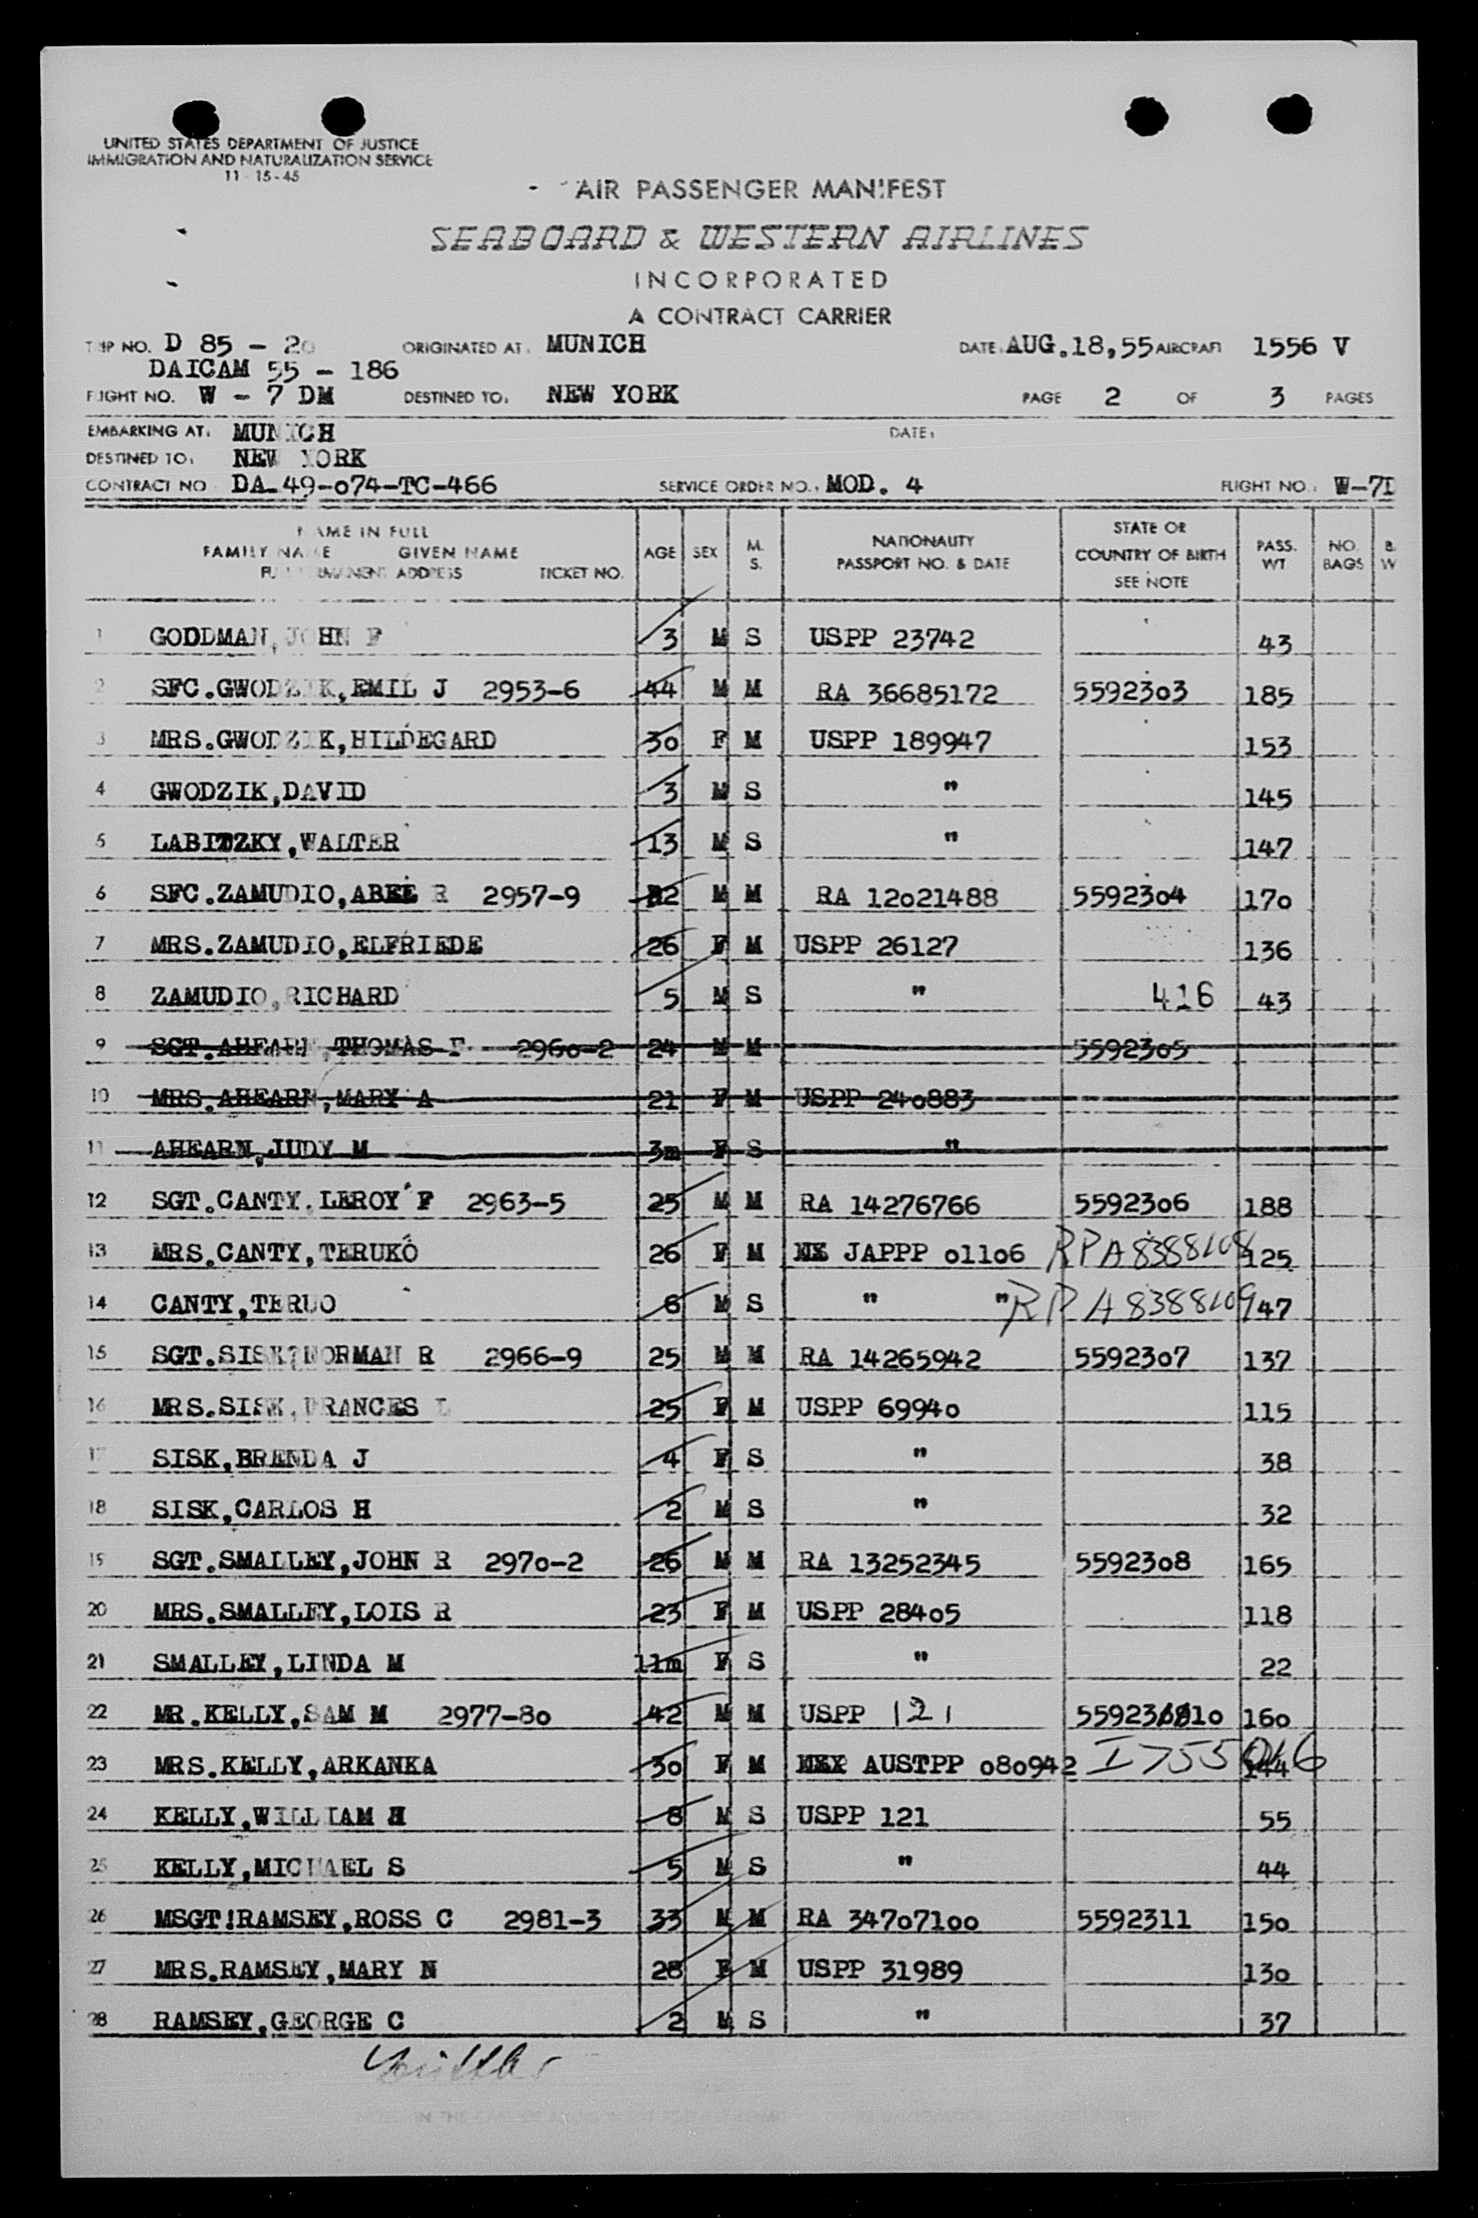 UNITED STATES DEPARTMENT OF JUSTICE
IMMIGRATION AND NATURALIZATION SERVICE
11-15-45
AIR PASSENGER MANIFEST
SEABOARD & WESTERN AIRLINES
INCORPORATED
A CONTRACT CARRIER
TRIP NO. D 85 - 20 ORIGINATED AT: MUNICH DATE: AUG.18,55 AIRCRAFT 1556 V
DAICAM 55 - 186
FLIGHT NO. W - 7 DM DESTINED TO: NEW YORK PAGE 2 OF 3 PAGES
EMBARKING AT: MUNICH DATE:
DESTINED TO: NEW YORK
CONTRACT NO DA-49-074-TC-466 SERVICE ORDER NO.: MOD. 4 FLIGHT NO.: W-7D
NAME IN FULL
FAMILY NAME GIVEN NAME
FULL PERMANENT ADDRESS TICKET NO. AGE SEX M. S. NATIONALITY PASSPORT NO. & DATE STATE OR COUNTRY OF BIRTH SEE NOTE PASS. WT NO. BAGS B. W
1 GODDMAN, JOHN F 3 M S USPP 23742 43
2 SFC.GWODZIK,EMIL J 2953-6 44 M M RA 36685172 5592303 185
3 MRS.GWODZIK,HILDEGARD 30 F M USPP 189947 153
4 GWODZIK,DAVID 3 M S " 145
5 LABITZKY,WALTER 13 M S " 147
6 SFC.ZAMUDIO,ABEL R 2957-9 32 M M RA 12021488 5592304 170
7 MRS.ZAMUDIO,ELFRIEDE 26 F M USPP 26127 136
8 ZAMUDIO,RICHARD 5 M S " 416 43
9 SGT.AHEARN,THOMAS F 2960-2 24 M M 5592305
10 MRS.AHEARN,MARY A 21 F M USPP 240883
11 AHEARN,JUDY M 3m F S "
12 SGT.CANTY,LEROY F 2963-5 25 M M RA 14276766 5592306 188
13 MRS.CANTY,TERUKO 26 F M JAPPP 01106 RPA8388108 125
14 CANTY,TERUO 6 M S " " RP A8388109 47
15 SGT.SISK,NORMAN R 2966-9 25 M M RA 14265942 5592307 137
16 MRS.SISK,FRANCES L 25 F M USPP 69940 115
17 SISK,BRENDA J 4 F S " 38
18 SISK,CARLOS H 2 M S " 32
19 SGT.SMALLEY,JOHN R 2970-2 26 M M RA 13252345 5592308 165
20 MRS.SMALLEY,LOIS R 23 F M USPP 28405 118
21 SMALLEY,LINDA M 11m F S " 22
22 MR.KELLY,SAM M 2977-80 42 M M USPP 121 160
23 MRS.KELLY,ARKANKA 30 F M AUSTPP 080942 144
24 KELLY,WILLIAM H 8 M S USPP 121 55
25 KELLY,MICHAEL S 5 M S " 44
26 MSGT!RAMSEY,ROSS C 2981-3 33 M M RA 34707100 5592311 150
27 MRS.RAMSEY,MARY N 28 F M USPP 31989 130
28 RAMSEY,GEORGE C 2 M S " 37